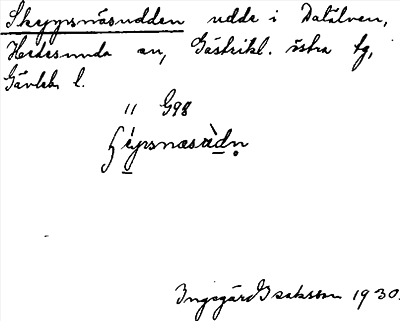 Skeppsnäsudden udde i Dalälven,
Hedesunda sn, Gästrikl. östra tg,
Gävleb. l.
11 G98
Ingegärd Isaksson 1930.